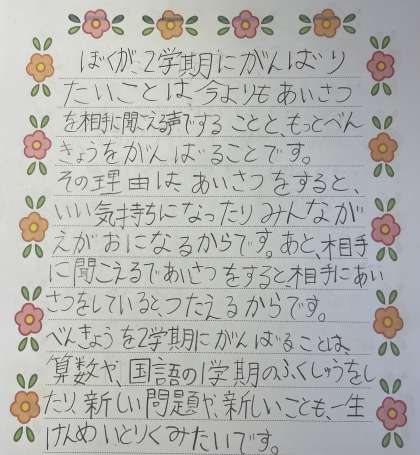 ぼくが、2学期にがんばり
たいことは、今よりもあいさつ
を相手に聞こえる声でする ことと、もっとべん
きょうをがんばることです。
その理由は、あいさつをすると、
いい気持ちになったりみんなが
えがおになるからです。あと、相手
に聞こえるであいさつをすると、相手にあい
さつをしていると、つたえるからです。
べんきょうを2学期にがんばることは、
算数や、国語の1学期のふくしゅうをし
たり、新しい問題や、新しいことも、一生
けんめいとりくみたいです。